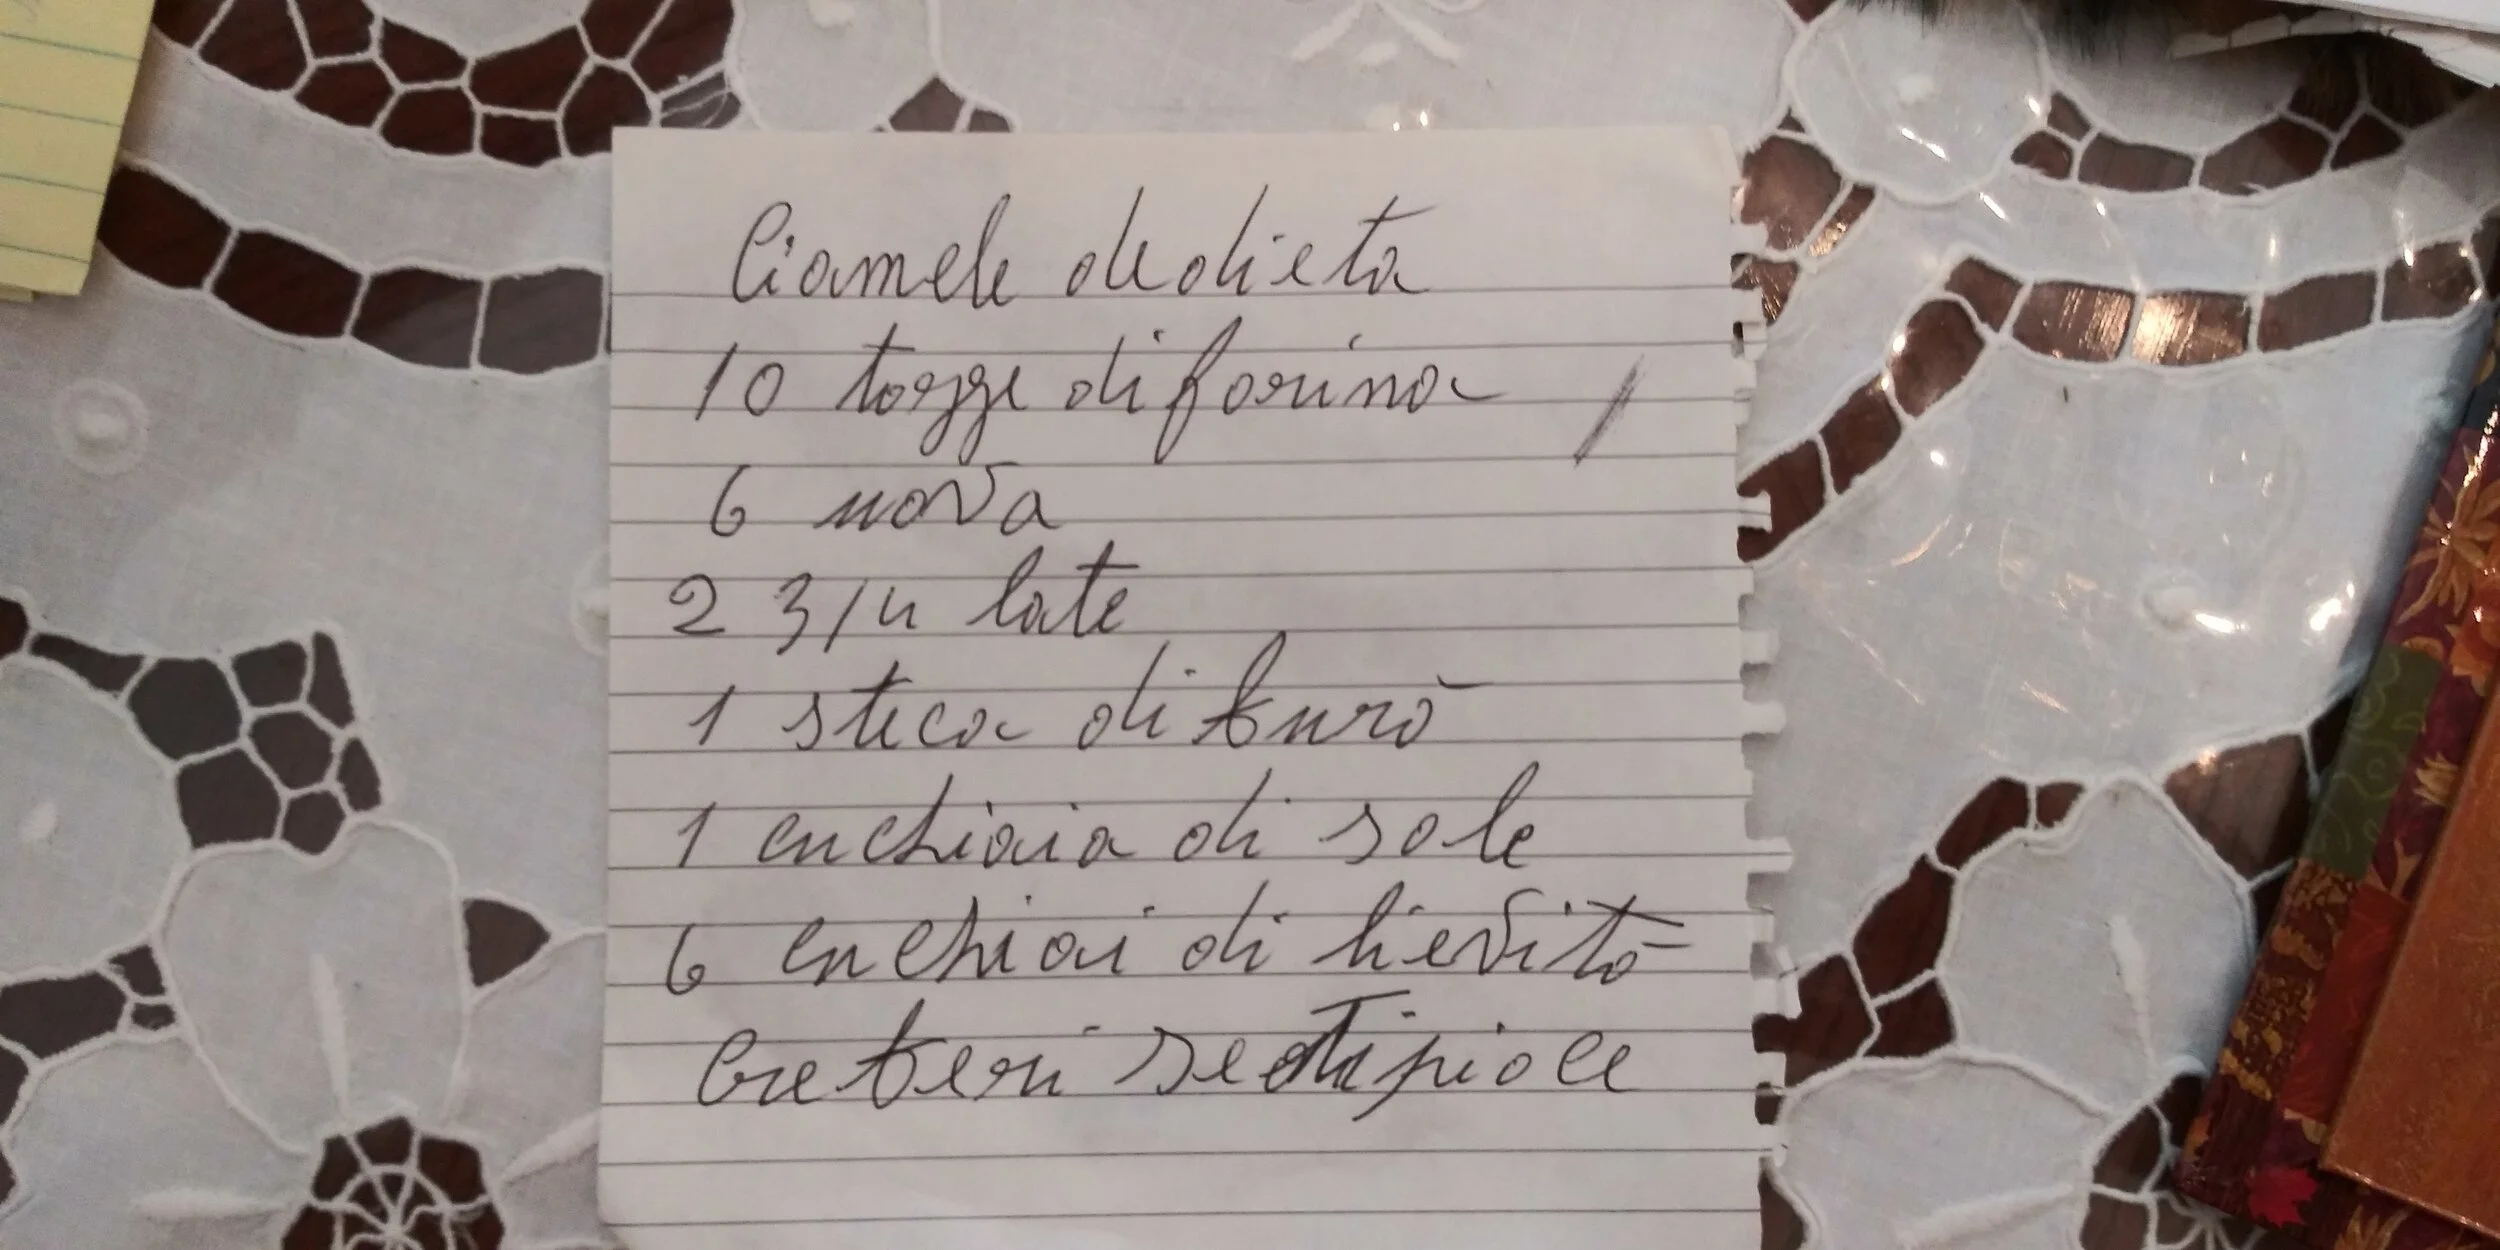 Ciamele de dieta
10 tazze di farina
6 uova
2 3/4 late
1 steca di burò
1 cuchiaia di sale
6 cuchiai di lievitò
se ti piace